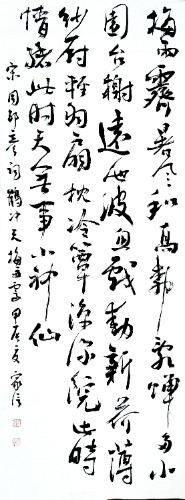 梅雨霽暑風和高柳亂蟬多小
園台榭遠池波魚戲動新荷薄
紗厨輕羽扇枕冷簟涼深院此時
情緒此时天無事小神仙
宋周邦彥詞鶴冲天梅雨霽甲辰夏家信